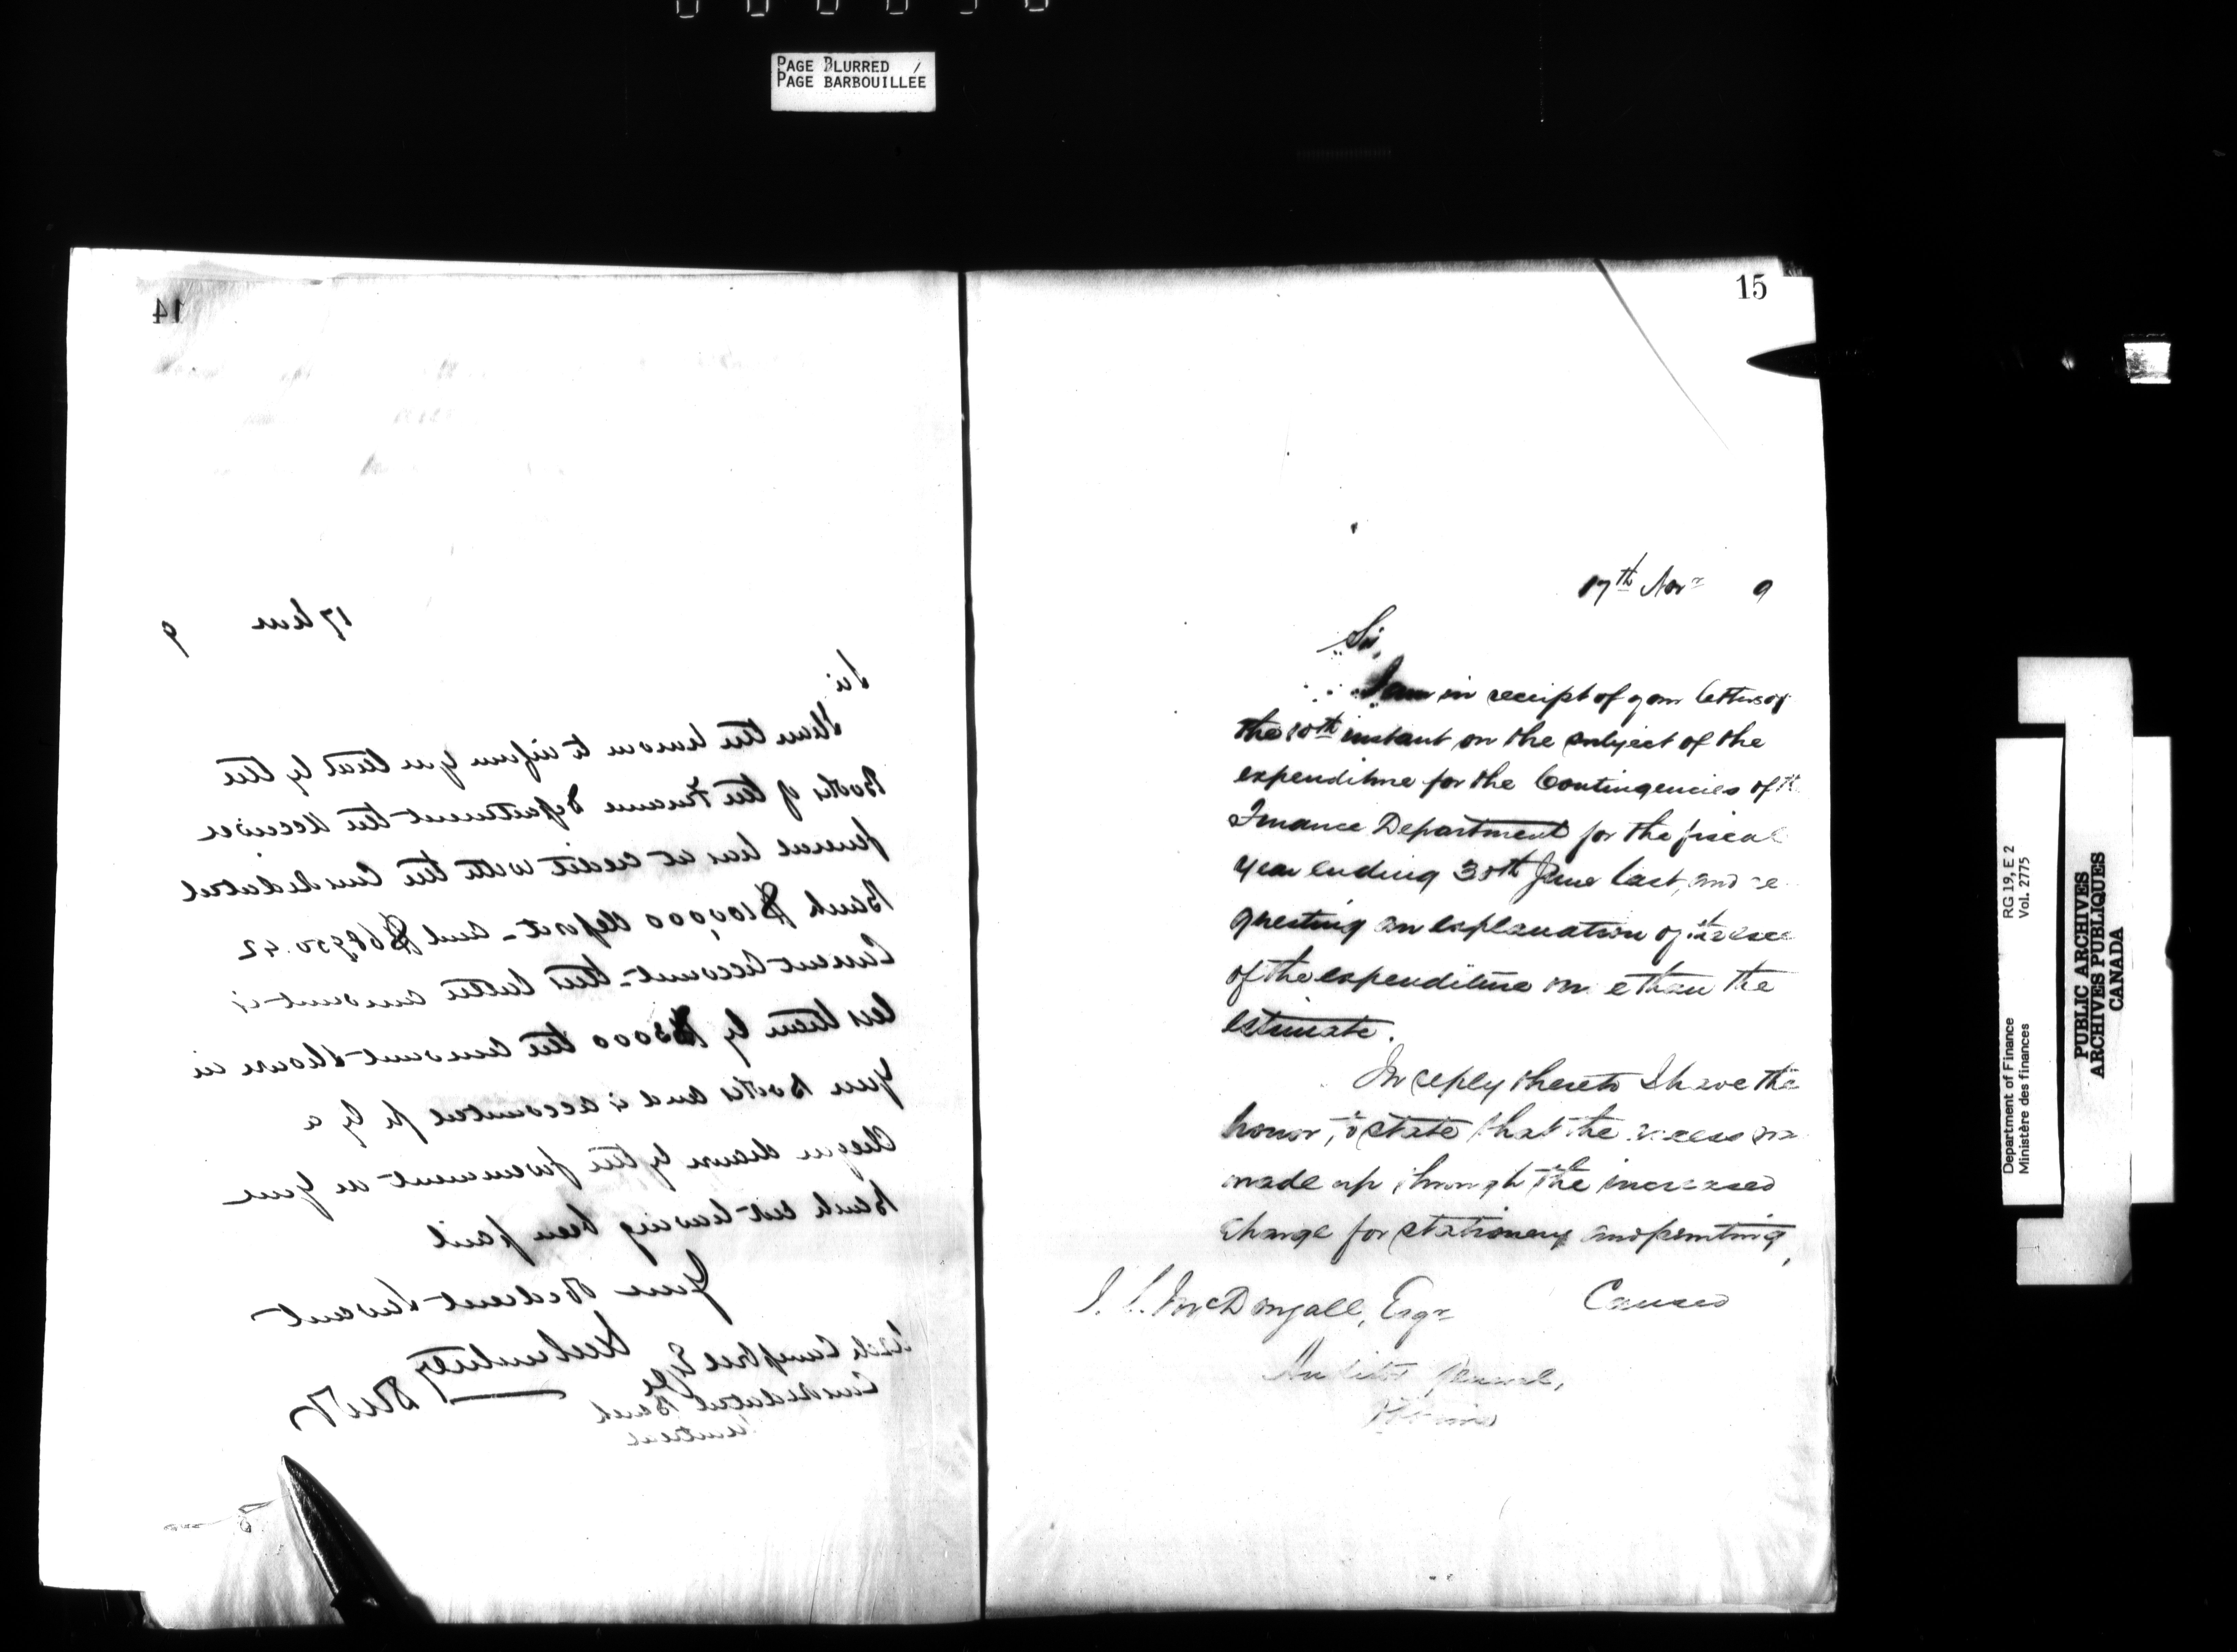 PAGE BLURRED
PAGE BARBOUILLEE
14
17 Nov 9
Sir
I have the honor to inform you that by the
Books of the Finance Department the Receiver
General has at credit with the Consolidated
Bank $100,000 deposit and $68950.42
Current account this latter amount is
less than by $3000 the amount shown in
your Books and is accounted for by a
Cheque drawn by the Government on your
Bank not having been paid
Your Obedient Servant
Campbell Esq
Consolidated Bank
Montreal
15
17th Novr 9
Sir,
I am in receipt of your letter of
the 10th instant on the subject of the
expenditure for the Contingencies of th
Finance Department for the fiscal
year ending 30th June last, and re
questing an explanation of the
of the expenditure than the
estimate.
In reply thereto I have the
honor, to state that the excess
made up through the increased
charge for stationery and printing,
Caused
J. L. McDougall, Esqr
Auditor General,
RG 19, E 2
Vol. 2775
Department of Finance
Ministère des finances
PUBLIC ARCHIVES
ARCHIVES PUBLIQUES
CANADA